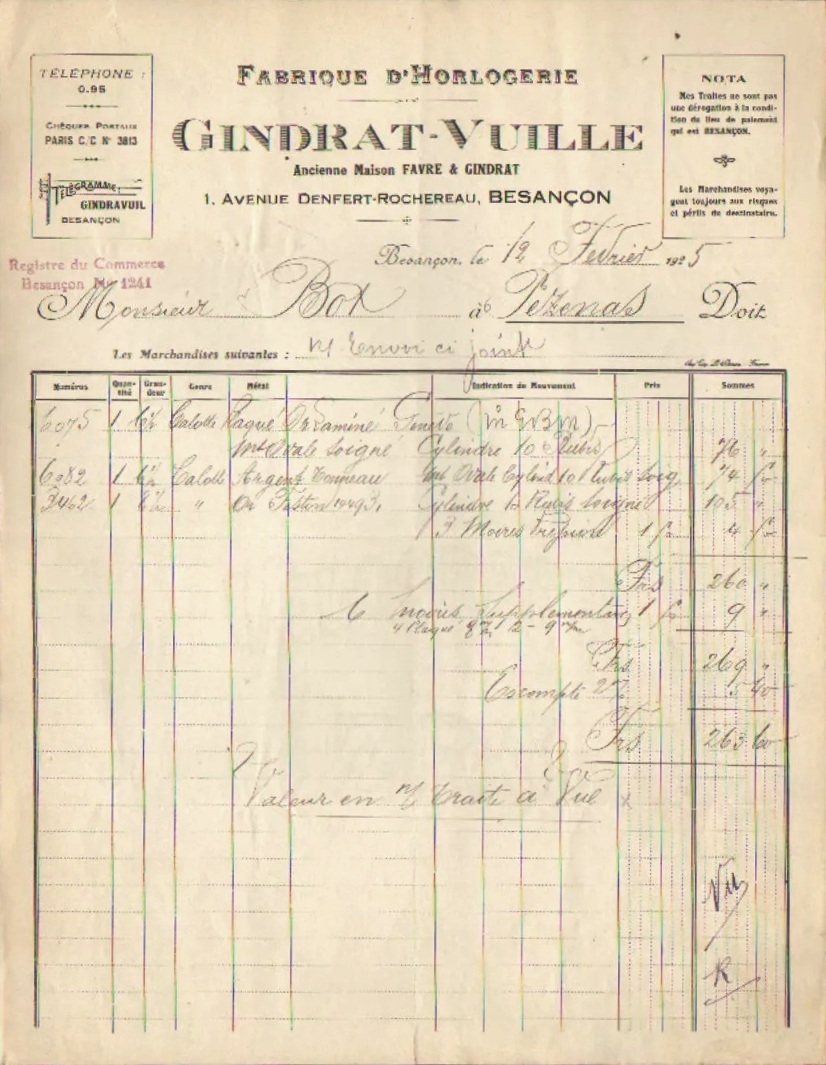 TÉLÉPHONE :
0.95
CHÈQUES POSTAUX
PARIS C/C N° 3813
TÉLÉGRAMME:
GINDRAVUIL
BESANÇON
FABRIQUE D'HORLOGERIE
GINDRAT-VUILLE
Ancienne Maison FAVRE & GINDRAT
1, AVENUE DENFERT-ROCHEREAU, BESANÇON
NOTA
Mes Traites ne sont pas
une dérogation à la condi-
tion de lieu de paiement
qui est BESANÇON.
Les Marchandises voya-
gent toujours aux risques
et périls du destinataire.
Registre du Commerce
Besançon No 1241
Besançon, le 12 Février 1925
Monsieur Box à Pézenas Doit
Les Marchandises suivantes : Envoi ci joint
Numéros Quan-tité Gran-deur Genre Métal Indication du Mouvement Prix Sommes
6075 1 6½ Calotte Plaqué Or Laminé
Ovale Soigné Cylindre 10 Rubis 76 "
6082 1 6½ Calotte Argent Tonneau Ovale Cylind 10 Rubis Soig 74
3462 1 6½ " Or Cylindre 10 Rubis Soigné 105 "
3 Moires 1 4
Frs 260 "
6 Moires Supplémentaires 1 9 "
4 Plaqué 2 - 9
Frs 269 "
Escompte 2% 5 40
Frs 263 60
Valeur en Traite à Vue
Vu
R